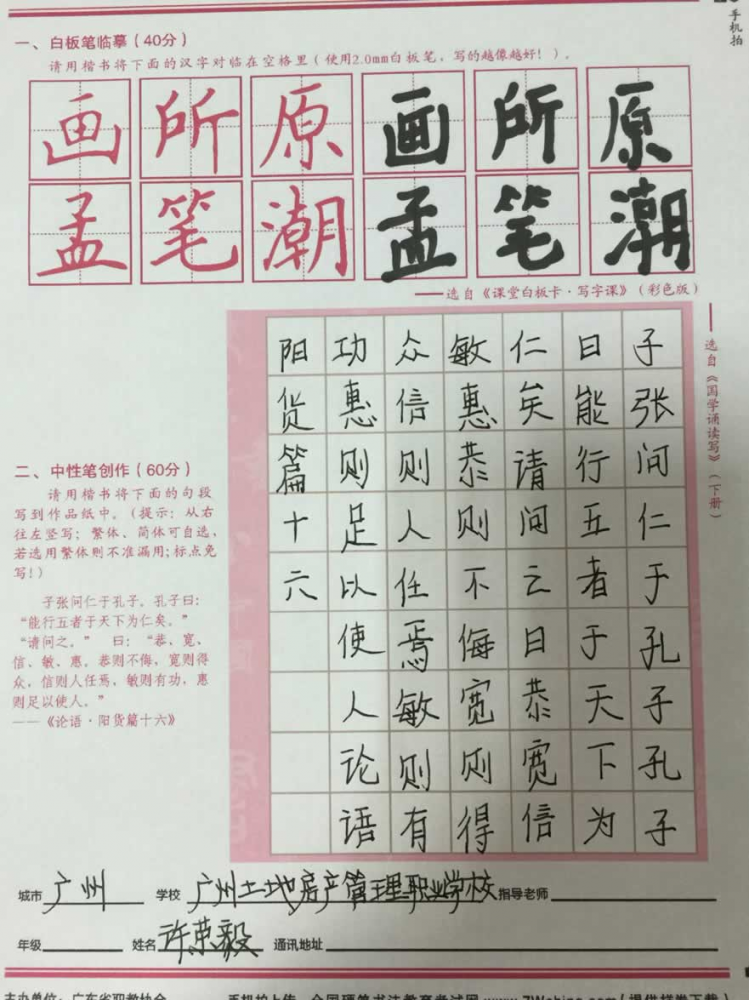 手机拍
一、白板笔临摹（40分）
请用楷书将下面的汉字对临在空格里（使用2.0mm白板笔，写的越像越好！）。
画所原画所原
孟笔潮孟笔潮
——选自《课堂白板卡·写字课》（彩色版）
——选自《国学诵读写》（下册）
子张问仁于孔子孔子
曰能行五者于天下为
仁矣请问之曰恭宽信
敏惠恭则不侮宽则得
众信则人任焉敏则有
功惠则足以使人论语
阳货篇十六
二、中性笔创作（60分）
请用楷书将下面的句段
写到作品纸中。（提示：从右
往左竖写；繁体、简体可自选，
若选用繁体则不准漏用；标点免
写！）
子张问仁于孔子，孔子曰：
“能行五者于天下为仁矣。”
“请问之。” 曰：“恭，宽、
信、敏、惠。恭则不侮，宽则得
众，信则人任焉，敏则有功，惠
则足以使人。”
——《论语·阳货篇十六》
城市 广州 学校 广州土地房产管理职业学校 指导老师
年级 姓名 许荣毅 通讯地址
主办单位：广东省职教协会 手机拍上传 全国硬笔书法教育考试网